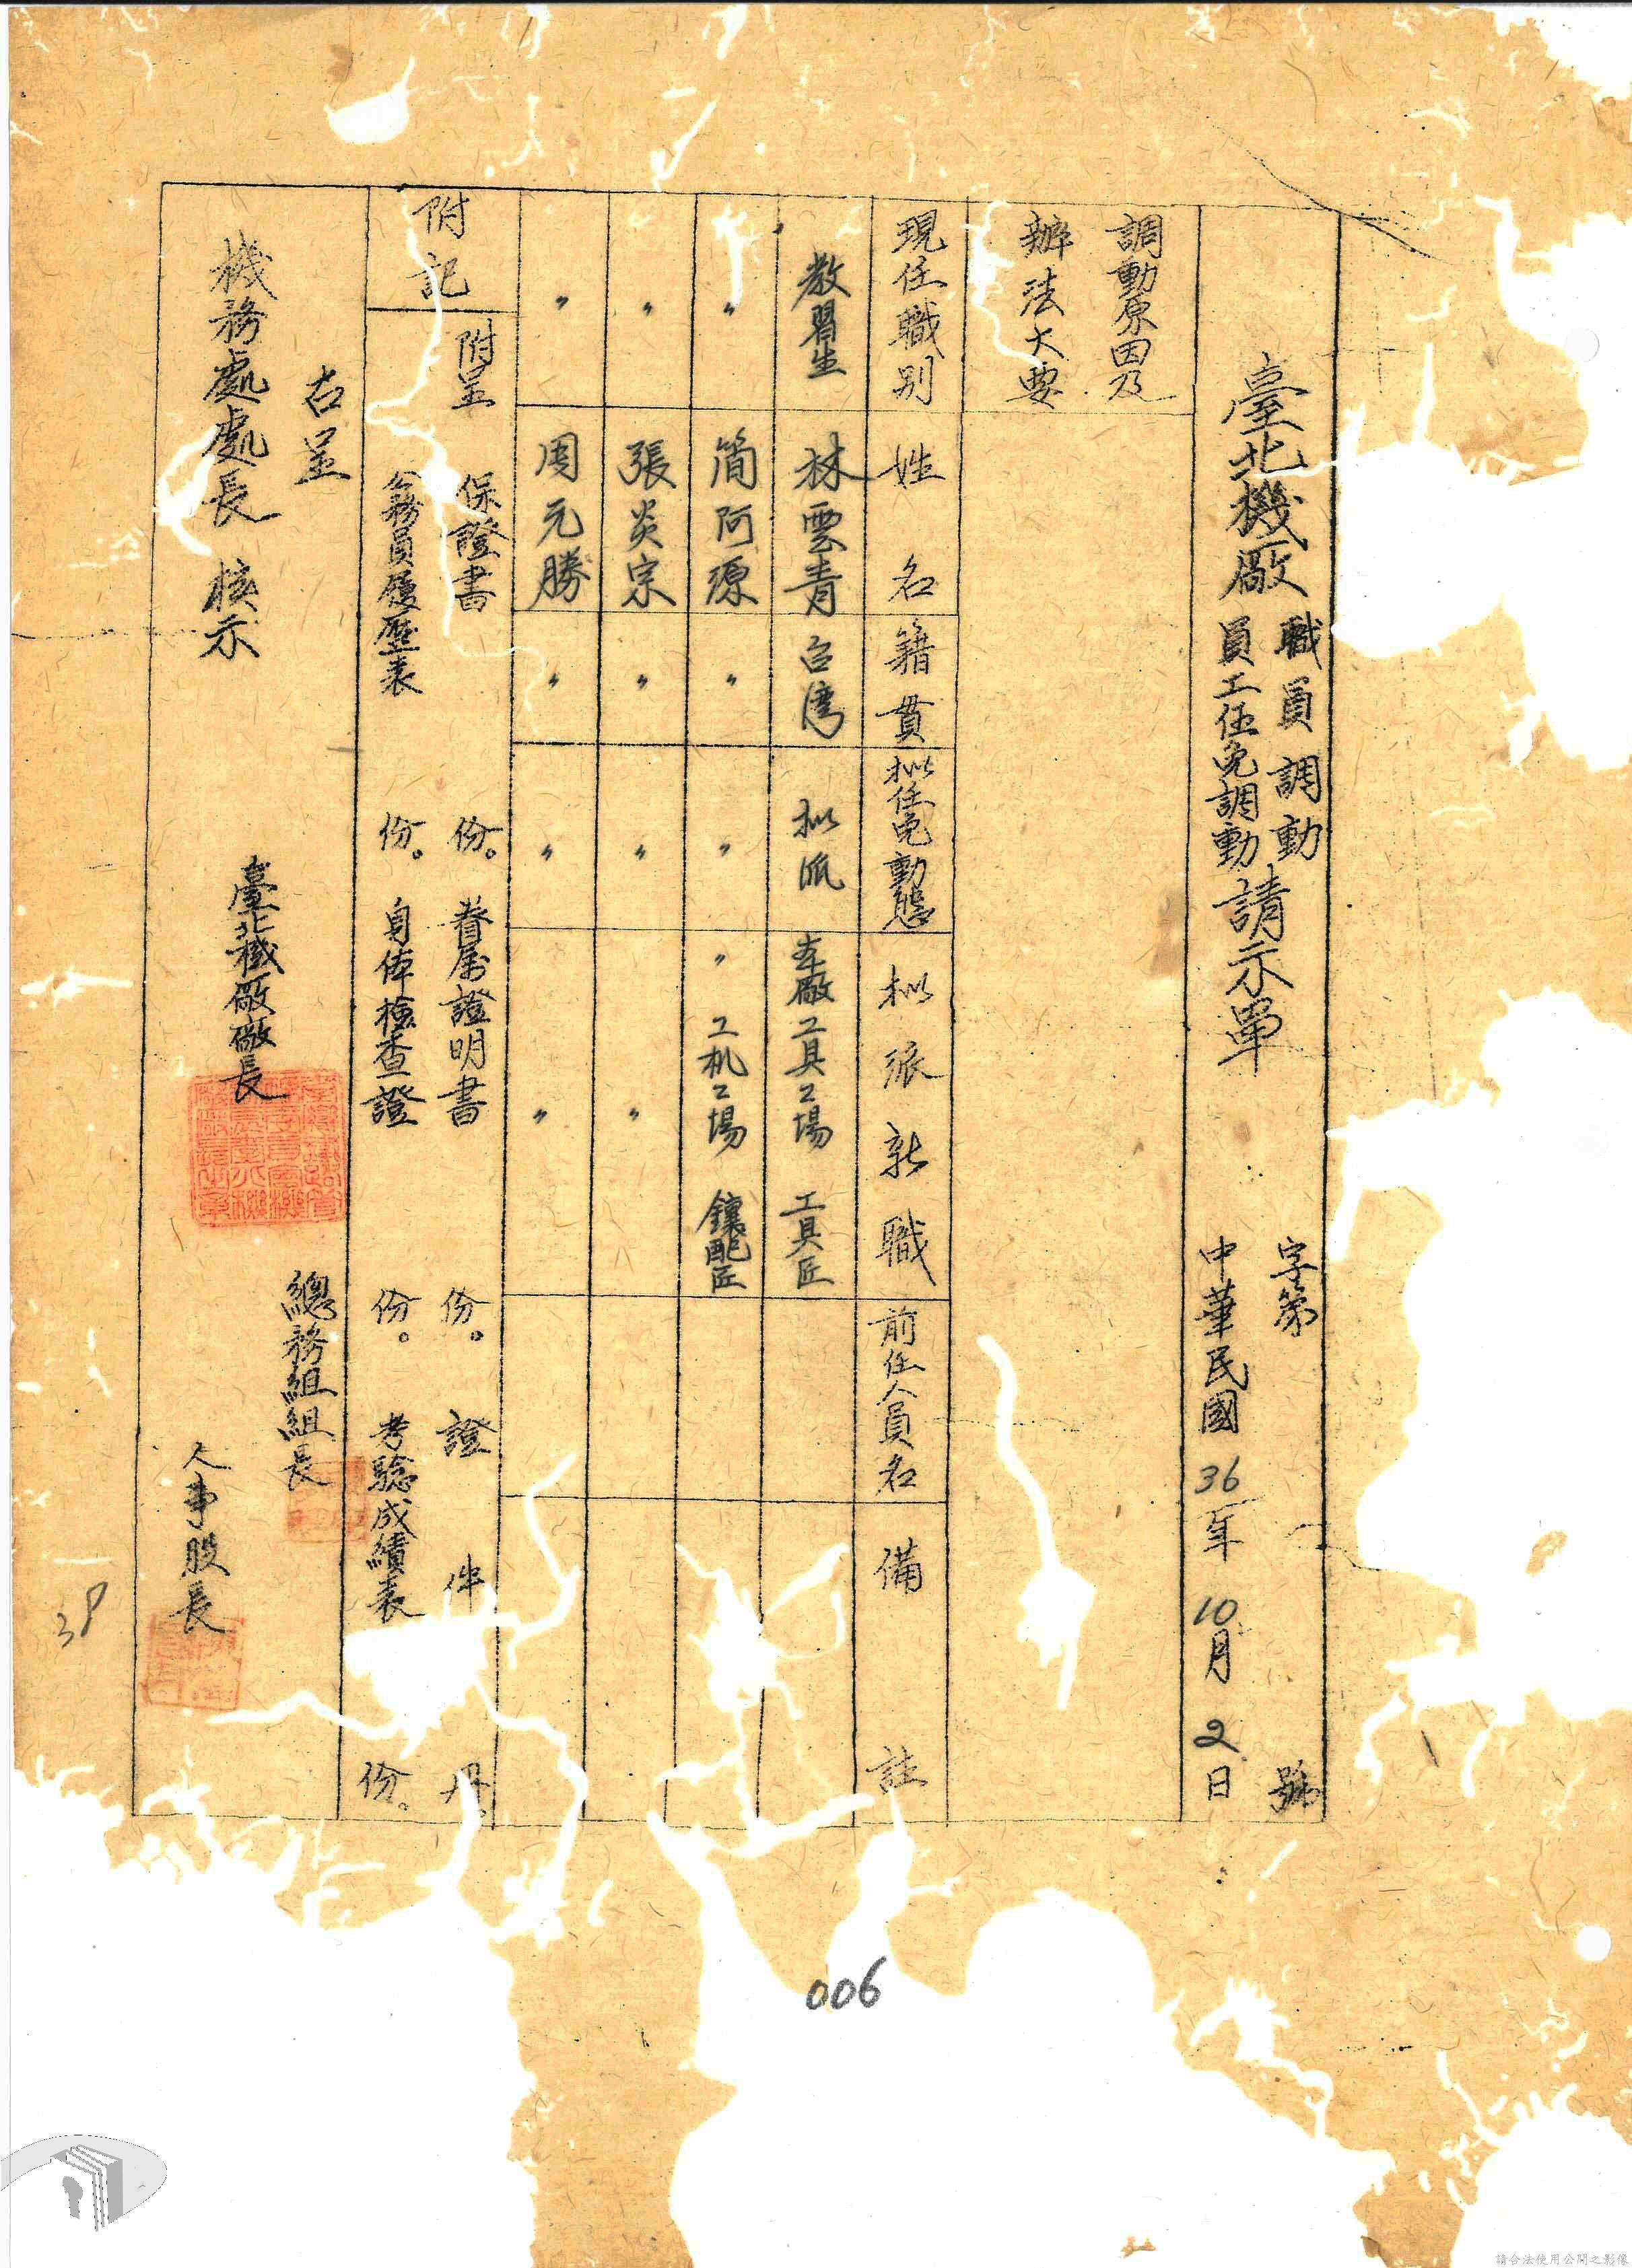 臺北機廠
職員調動
員工任免調動
請示單
字第 號
中華民國 36年 10月 2日
調動原因及
辦法大要
現任職別 姓名 籍貫 拟任免動態 拟派新職 前任人員名 備註
教習生 林雲青 台湾 拟派 本廠工具工場 工具匠
〃 简阿源 〃 〃 〃 工机工場 鑲配匠
〃 張炎宗 〃 〃 〃
〃 周元勝 〃 〃 〃
附記
附呈 保證書 份。 眷屬證明書 份。 證件 份。
公務員履歷表 份。 身体檢查證 份。 考驗成績表 份。
右呈
機務處處長 核示
臺北機廠廠長
總務組組長
人事股長
38
006
請合法使用公開之影像